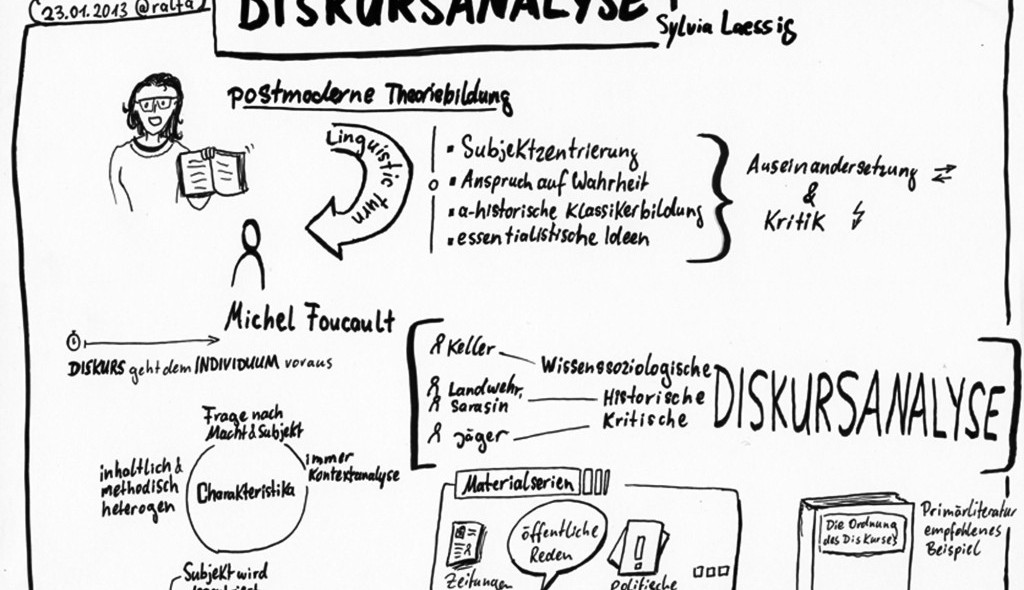 23.01.2013 @ralfa
DISKURSANALYSE
Sylvia Laessig
postmoderne Theoriebildung
Linguistic turn
Subjektzentrierung
Anspruch auf Wahrheit
a-historische Klassikerbildung
essentialistische Ideen
Auseinandersetzung
&
Kritik
Michel Foucault
DISKURS geht dem INDIVIDUUM voraus
Keller
Wissenssoziologische
Landwehr,
Sarasin
Historische
Jäger
Kritische
DISKURSANALYSE
Frage nach
Macht & Subjekt
immer
Kontextanalyse
inhaltlich &
methodisch
heterogen
Charakteristika
Subjekt wird
Materialserien
Zeitungen
öffentliche
Reden
Politische
Die Ordnung
des Diskurses
Primärliteratur
empfohlenes
Beispiel